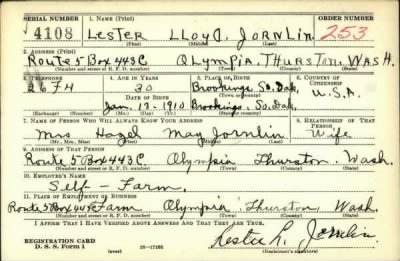 SERIAL NUMBER 1. NAME (Print) ORDER NUMBER
4108 LESTER LLOYD. JORNLIN. 253
(First) (Middle) (Last)
2. ADDRESS (Print)
Route 5 Box 443C OLYMPIA. THURSTON. WASH.
(Number and street or R. F. D. number) (Town) (County) (State)
3. TELEPHONE 4. AGE IN YEARS 5. PLACE OF BIRTH 6. COUNTRY OF CITIZENSHIP
26F4 30 Brookings So. Dak.
DATE OF BIRTH (Town or county)
Jan. 13. 1910 Brookings, So. Dak. U.S.A.
(Exchange) (Number) (Mo.) (Day) (Yr.) (State or country)
7. NAME OF PERSON WHO WILL ALWAYS KNOW YOUR ADDRESS 8. RELATIONSHIP OF THAT PERSON
Mrs Hazel May Jornlin Wife
(Mr., Mrs., Miss) (First) (Middle) (Last)
9. ADDRESS OF THAT PERSON
Route 5 Box 443C Olympia Thurston Wash.
(Number and street or R. F. D. number) (Town) (County) (State)
10. EMPLOYER'S NAME
Self - Farm.
11. PLACE OF EMPLOYMENT OR BUSINESS
Route 5 Box 44 Farm Olympia Thurston Wash.
(Number and street or R. F. D. number) (Town) (County) (State)
I AFFIRM THAT I HAVE VERIFIED ABOVE ANSWERS AND THAT THEY ARE TRUE.
REGISTRATION CARD
D. S. S. Form 1 16-17105 Lester L. Jornlin
(Registrant's signature)